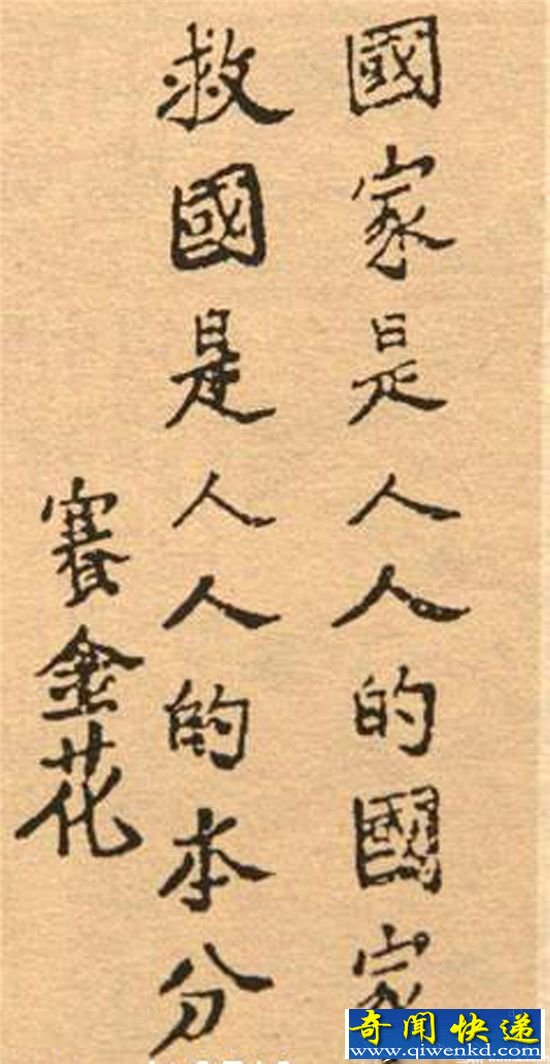 國家是人人的國家
救國是人人的本分
賽金花
奇闻快递
www.qiwenkd.com